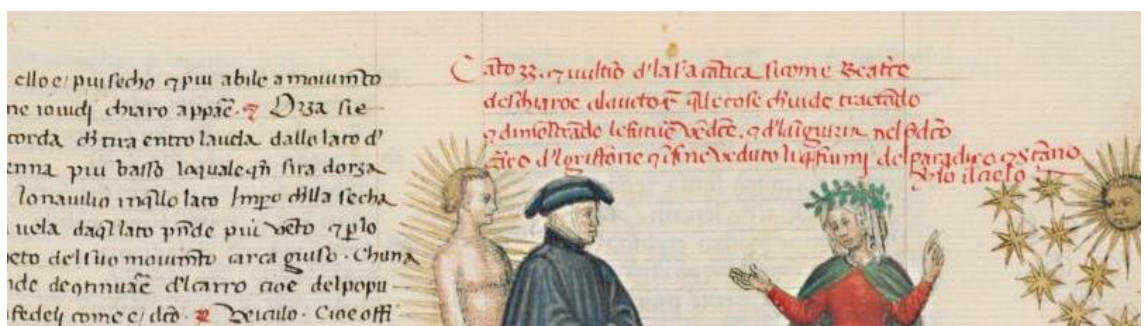 elloe piu secho ⁊ piu abile a mouimẽto
ne io uudj chiaro appaẽ. Orza si e
corda cħ tira entro lauela dallo lato d'
enna piu basso loquale qñ sira dorza
lo nauilio in q̃llo lato Impo cħlla secha
uela daq̃l lato p̃nde piu vẽto ⁊ p lo
eto del suo mouimẽto carca giuso. Chuna
de ↄtinuaẽ d'l carro cioe del popu
fedelj come e dcõ. Veiculo. Cioe offi
Cãto 33. ⁊ vultiõ d'la sa cãtica si come Beatre
deschiaroe alauctoꝝ q̃lle cose cħ uide tractãdo
⁊ dimostrãdo le future vẽdcẽ. ⁊ d'la ingiuria nel p̃dcõ
cãro d'l grifone ⁊ ĩ fine veduto li q̃ttro fiumi del paradiso ⁊ scãno
v̾so il cielo